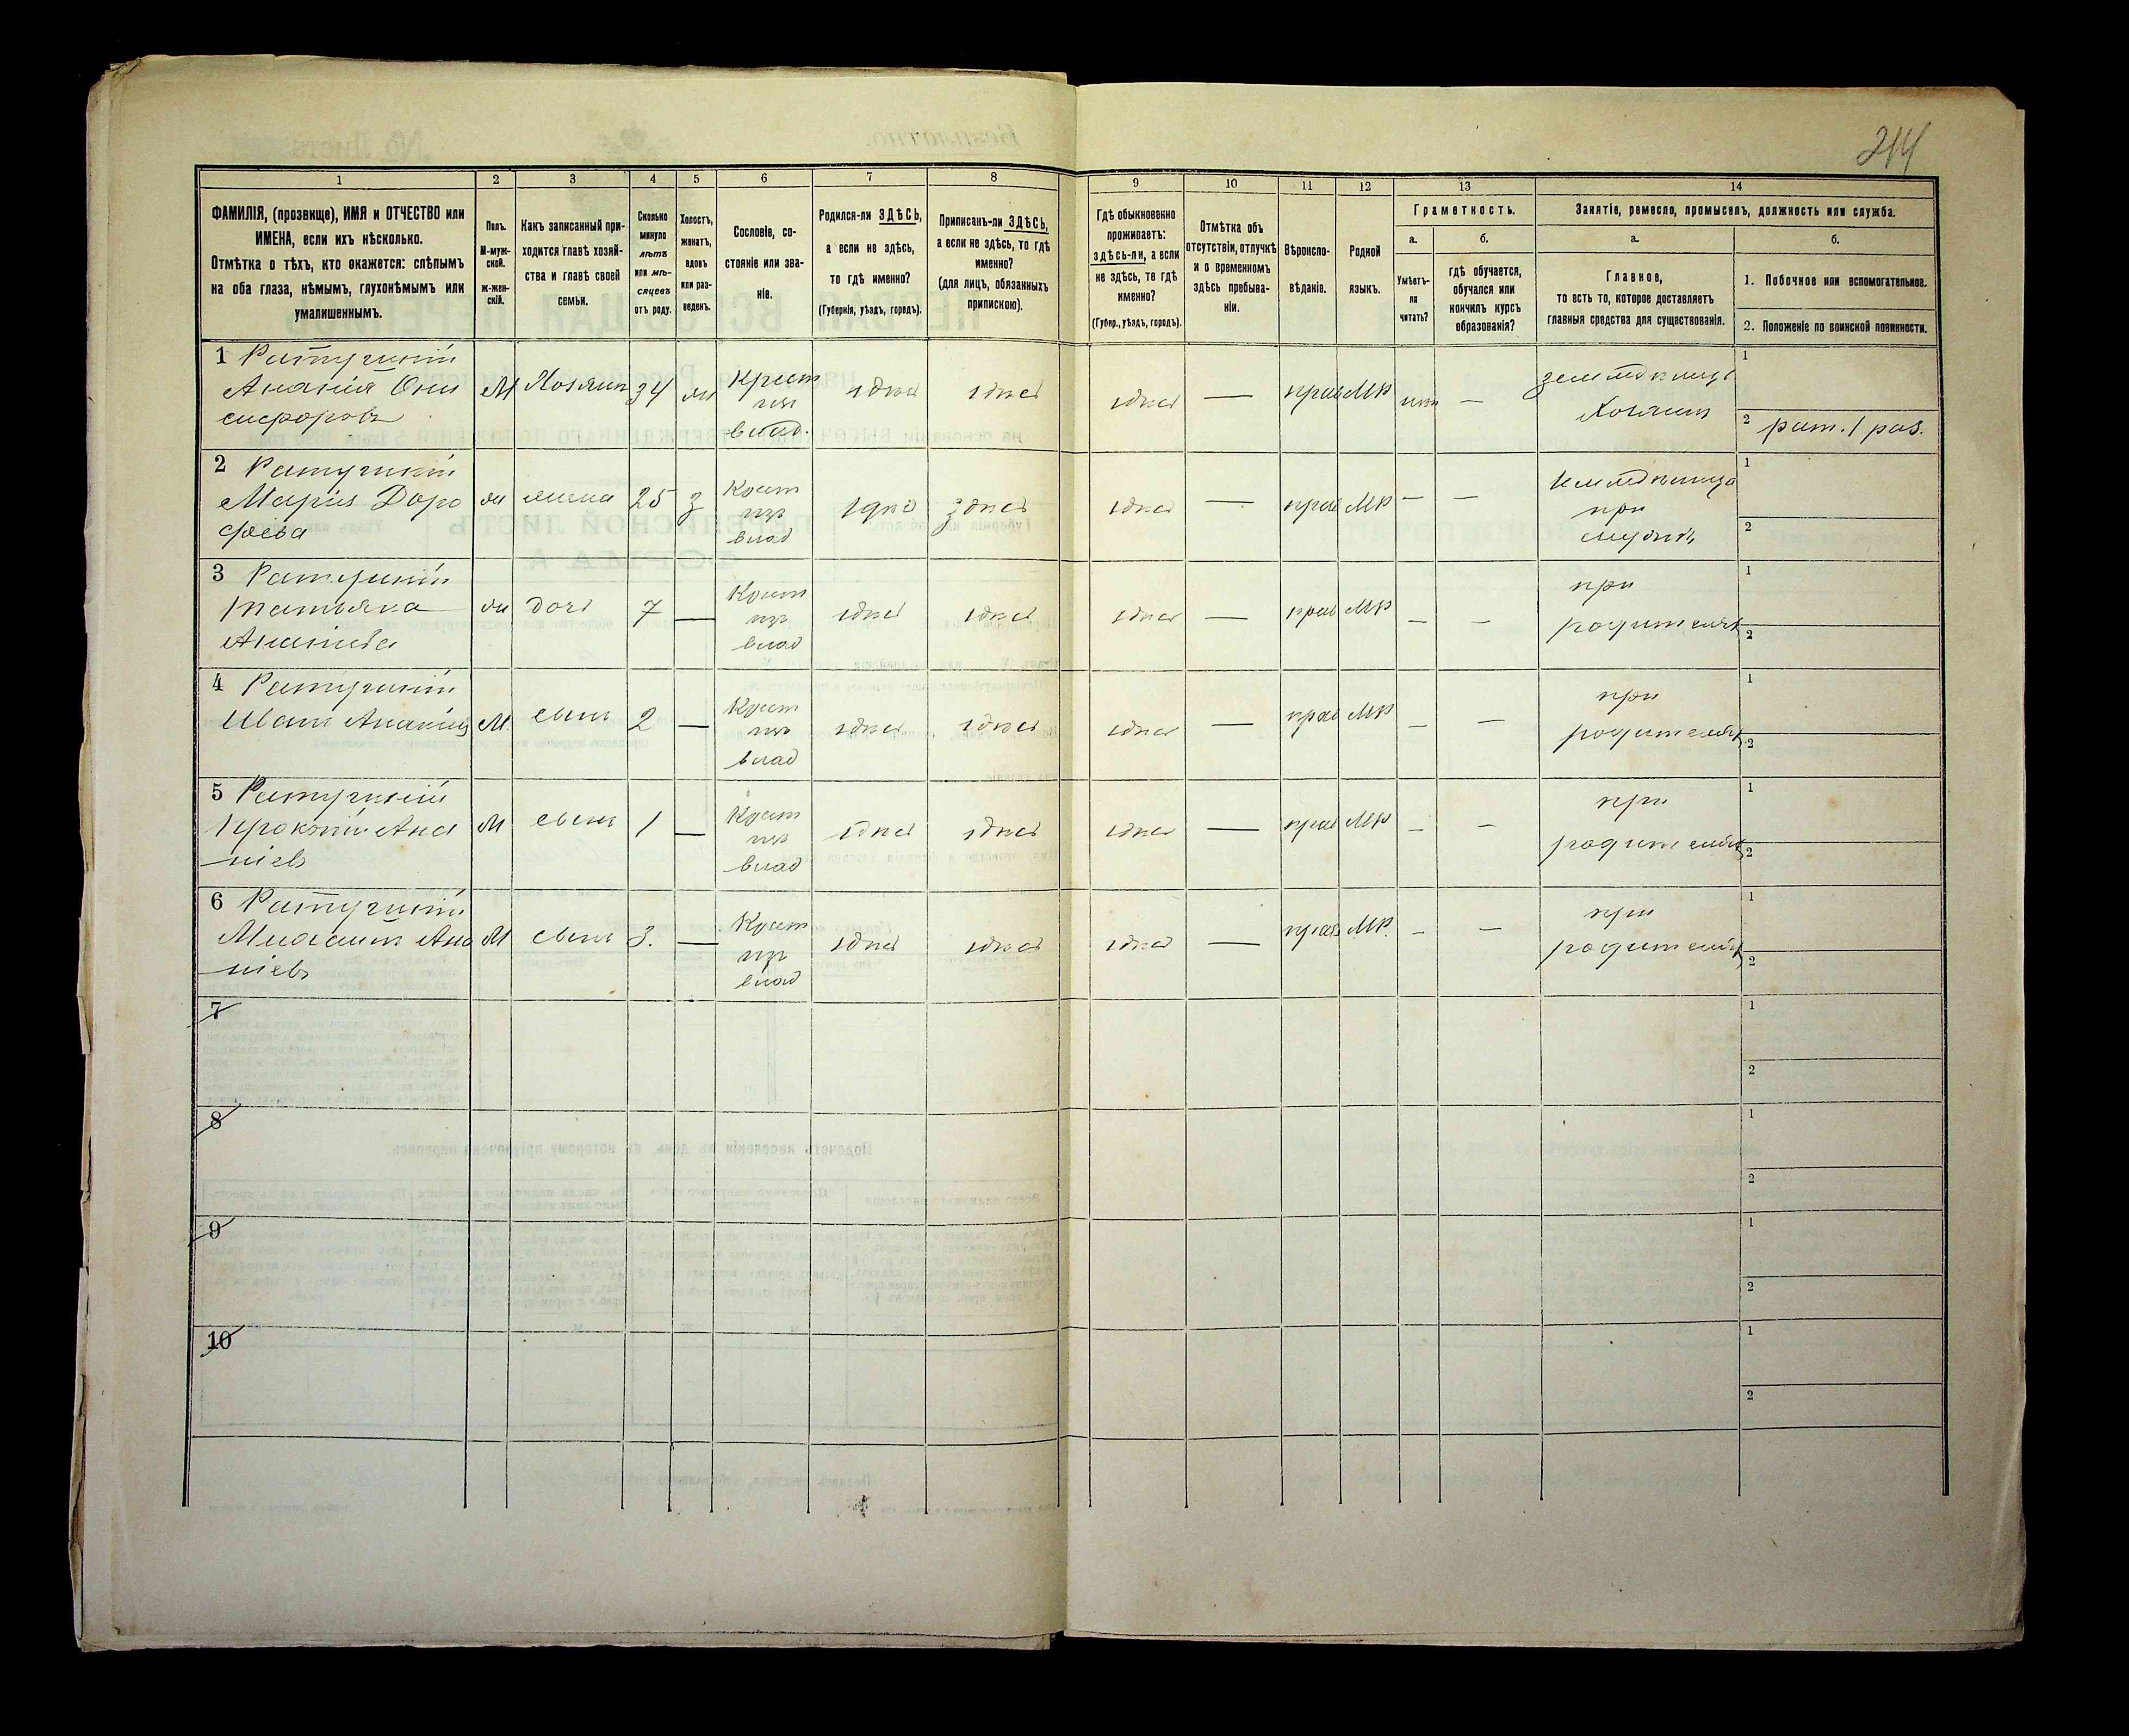 214
1
2
3
4
5
6
7
8
9
10
11
12
13
14
ФАМИЛІЯ, (прозвище), ИМЯ и ОТЧЕСТВО или
ИМЕНА, если ихъ нѣсколько.
Отмѣтка о тѣхъ, кто окажется: слѣпымъ
на оба глаза, нѣмымъ, глухонѣмымъ или
умалишеннымъ.
Полъ.
М-муж-
ской.
ж-жен-
скій.
Какъ записанный при-
ходится главѣ хозяй-
ства и главѣ своей
семьи.
Сколько
минуло
лѣтъ
или мѣ-
сяцевъ
отъ роду.
Холостъ,
женатъ,
вдовъ
или раз-
веденъ.
Сословіе, со-
стояніе или зва-
ніе.
Родился-ли ЗДѢСЬ,
а если не здѣсь,
то гдѣ именно?
(Губернія, уѣздъ, городъ).
Приписанъ-ли ЗДѢСЬ,
а если не здѣсь, то гдѣ
именно?
(для лицъ, обязанныхъ
припискою).
Гдѣ обыкновенно
проживаетъ:
здѣсь-ли, а если
не здѣсь, то гдѣ
именно?
(Губер., уѣздъ, городъ).
Отмѣтка объ
отсутствіи, отлучкѣ
и о временномъ
здѣсь пребыва-
ніи.
Вѣроиспо-
вѣданіе.
Родной
языкъ.
Грамотность.
а.
Умѣетъ-
ли
читать?
б.
гдѣ обучается,
обучался или
кончилъ курсъ
образованія?
Занятіе, ремесло, промыселъ, должность или служба.
а.
Главное,
то есть то, которое доставляетъ
главныя средства для существованія.
б.
1. Побочное или вспомогательное.
2. Положеніе по воинской повинности.
1
Ананія Они
сифоровъ
М
Хозяинъ
34
ж
Крест
изъ
влад.
здѣсь
здѣсь
здѣсь
—
прав
МР
—
Хозяинъ
1
2 рат. 1 раз.
2
Марія Доро
феева
ж
жена
25
з
Крест
изъ
влад
здѣсь
здѣсь
здѣсь
—
прав
МР
—
—
при
мужѣ
1
2
3
Татьяна
Ананіева
ж
дочь
7
—
Крест
изъ
влад
здѣсь
здѣсь
здѣсь
—
прав
МР
—
—
при
родителях
1
2
4
Иванъ Ананіев
М.
сынъ
2
—
Крест
изъ
влад
здѣсь
здѣсь
здѣсь
—
прав
МР
—
—
при
родителях
1
2
5
Прокопій Ана
ніевъ
М
сынъ
1
—
Крест
изъ
влад
здѣсь
здѣсь
здѣсь
—
прав
МР
—
—
при
родителях
1
2
6
Михаилъ Ана
ніевъ
М
сынъ
3.
—
Крест
изъ
влад
здѣсь
здѣсь
здѣсь
—
прав
МР.
—
—
при
родителях
1
2
7
1
2
8
1
2
9
1
2
10
1
2